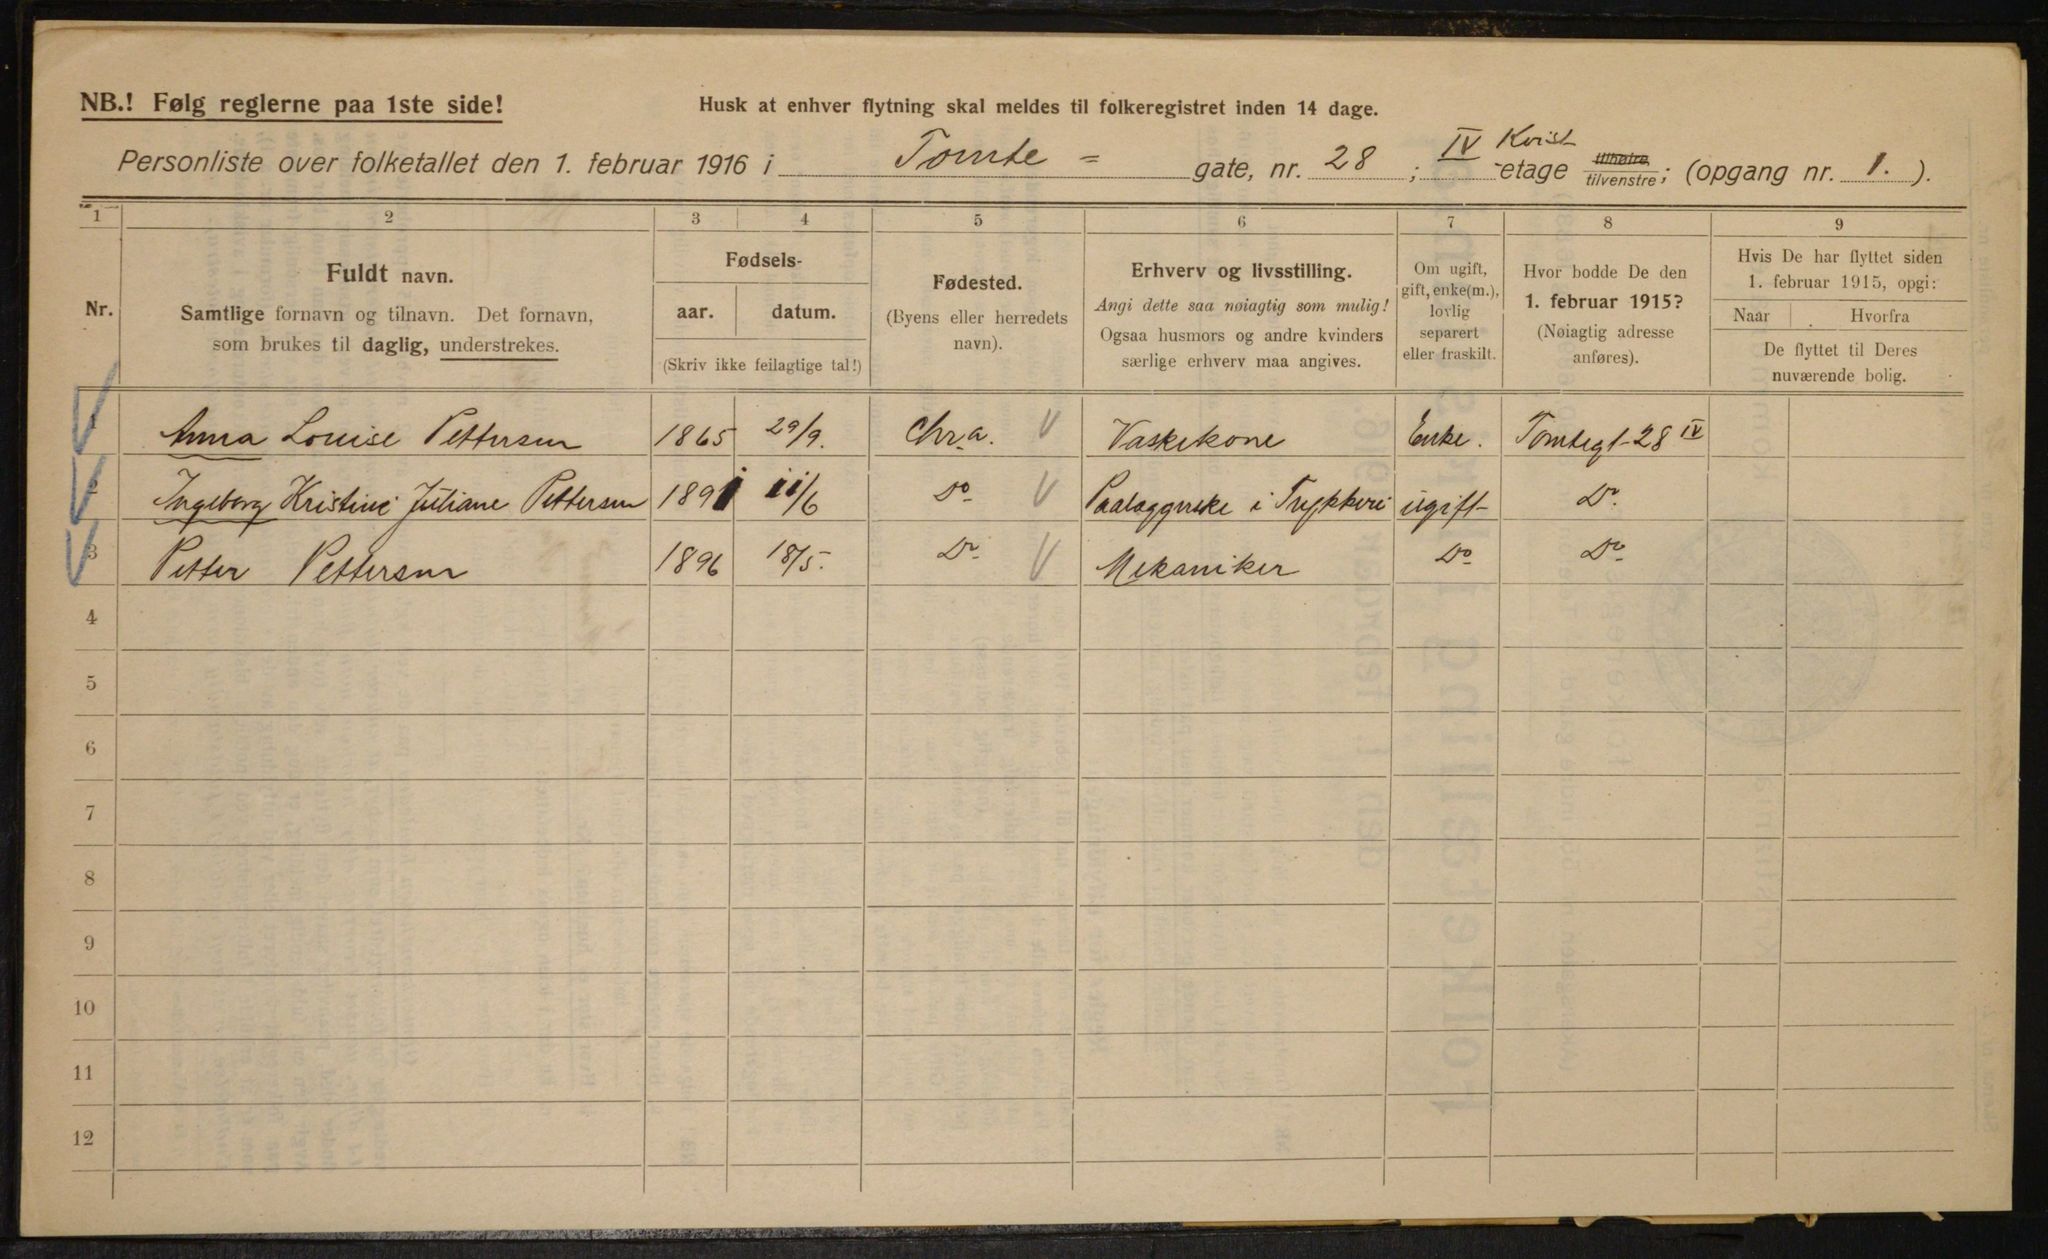 NB.! Følg reglerne paa 1ste side!
Husk at enhver flytning skal meldes til folkeregistret inden 14 dage.
Personliste over folketallet den 1. februar 1916 i Tomte = gate, nr. 28 ; IV Kvist -etage tilhøire, tilvenstre; (opgang nr. 1. ).
1 2 3 4 5 6 7 8 9
Nr.
Fuldt navn.
Samtlige fornavn og tilnavn. Det fornavn,
som brukes til daglig, understrekes.
Fødsels-
aar. datum.
(Skriv ikke feilagtige tal!)
Fødested.
(Byens eller herredets
navn).
Erhverv og livsstilling.
Angi dette saa nøiagtig som mulig!
Ogsaa husmors og andre kvinders
særlige erhverv maa angives.
Om ugift,
gift, enke(m.),
lovlig
separert
eller fraskilt.
Hvor bodde De den
1. februar 1915?
(Nøiagtig adresse
anføres).
Hvis De har flyttet siden
1. februar 1915, opgi:
Naar Hvorfra
De flyttet til Deres
nuværende bolig.
1 Anna Louise Pettersen 1865 29/9. Chr.a. Vaskekone Enke. Tomtegt 28 IV
2 Ingeborg Kristine Juliane Pettersen 1891 11/6 Do Paalæggerske i Trykkeri ugift Do
3 Petter Pettersen 1896 18/5. Do Mekaniker Do Do
4
5
6
7
8
9
10
11
12